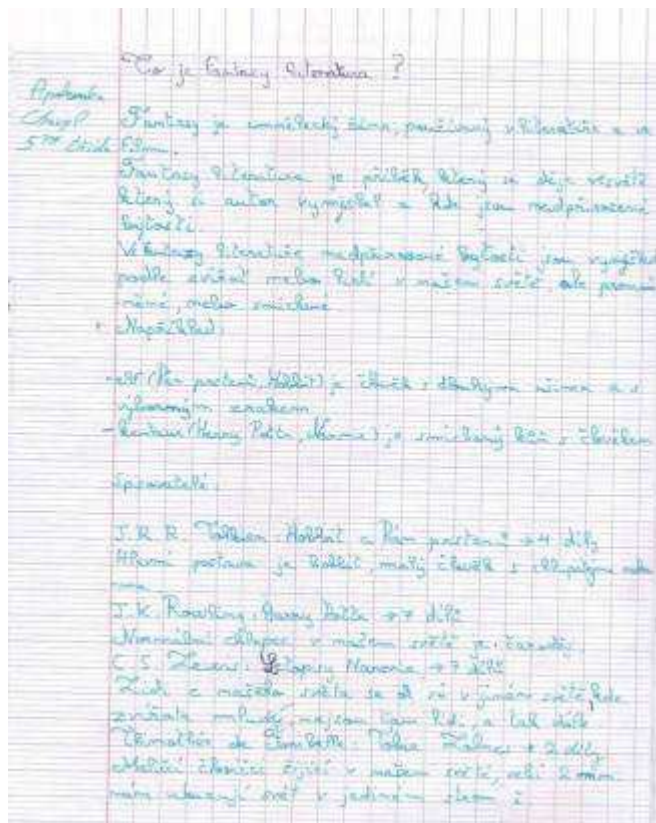 Co je fantasy literatura ?
Chapl
5ᵐᵉ třída
Fantasy je umělecký žánr, používaný v literatuře a ve
filmu.
Fantasy literatura je příběh, který se děje ve světě
který si autor vymyslel a kde jsou nadpřirozené
bytosti.
Ve fantasy literatuře nadpřirozené bytosti jsou
podle zvířat nebo lidí v našem světě, ale
nebo smíchané.
Například:
- elf (Pán prstenů, Hobbit) je člověk s dlouhýma ušima a s
výborným zrakem.
- Kentaur (Harry Potter, Narnie) je smíchaný kůň s člověkem
Spisovatelé:
J. R. R. Tolkien: Hobbit a Pán prstenů → 4 díly
Hlavní postava je hobbit, malý člověk s chlupatýma
J. K. Rowling: Harry Potter → 7 dílů
Normální chlapec v našem světě je čaroděj.
C. S. Lewis: Letopisy Narnie → 7 dílů
Lidi z našeho světa se v jiném světě, kde
zvířata mluví, nejsou tam lidi a tak dále
Timothée de Fombelle: Tobie Lolness → 2 díly
člověčci žijící v našem světě, velcí 2 mm
nám ukazují svět v jediném stromě.